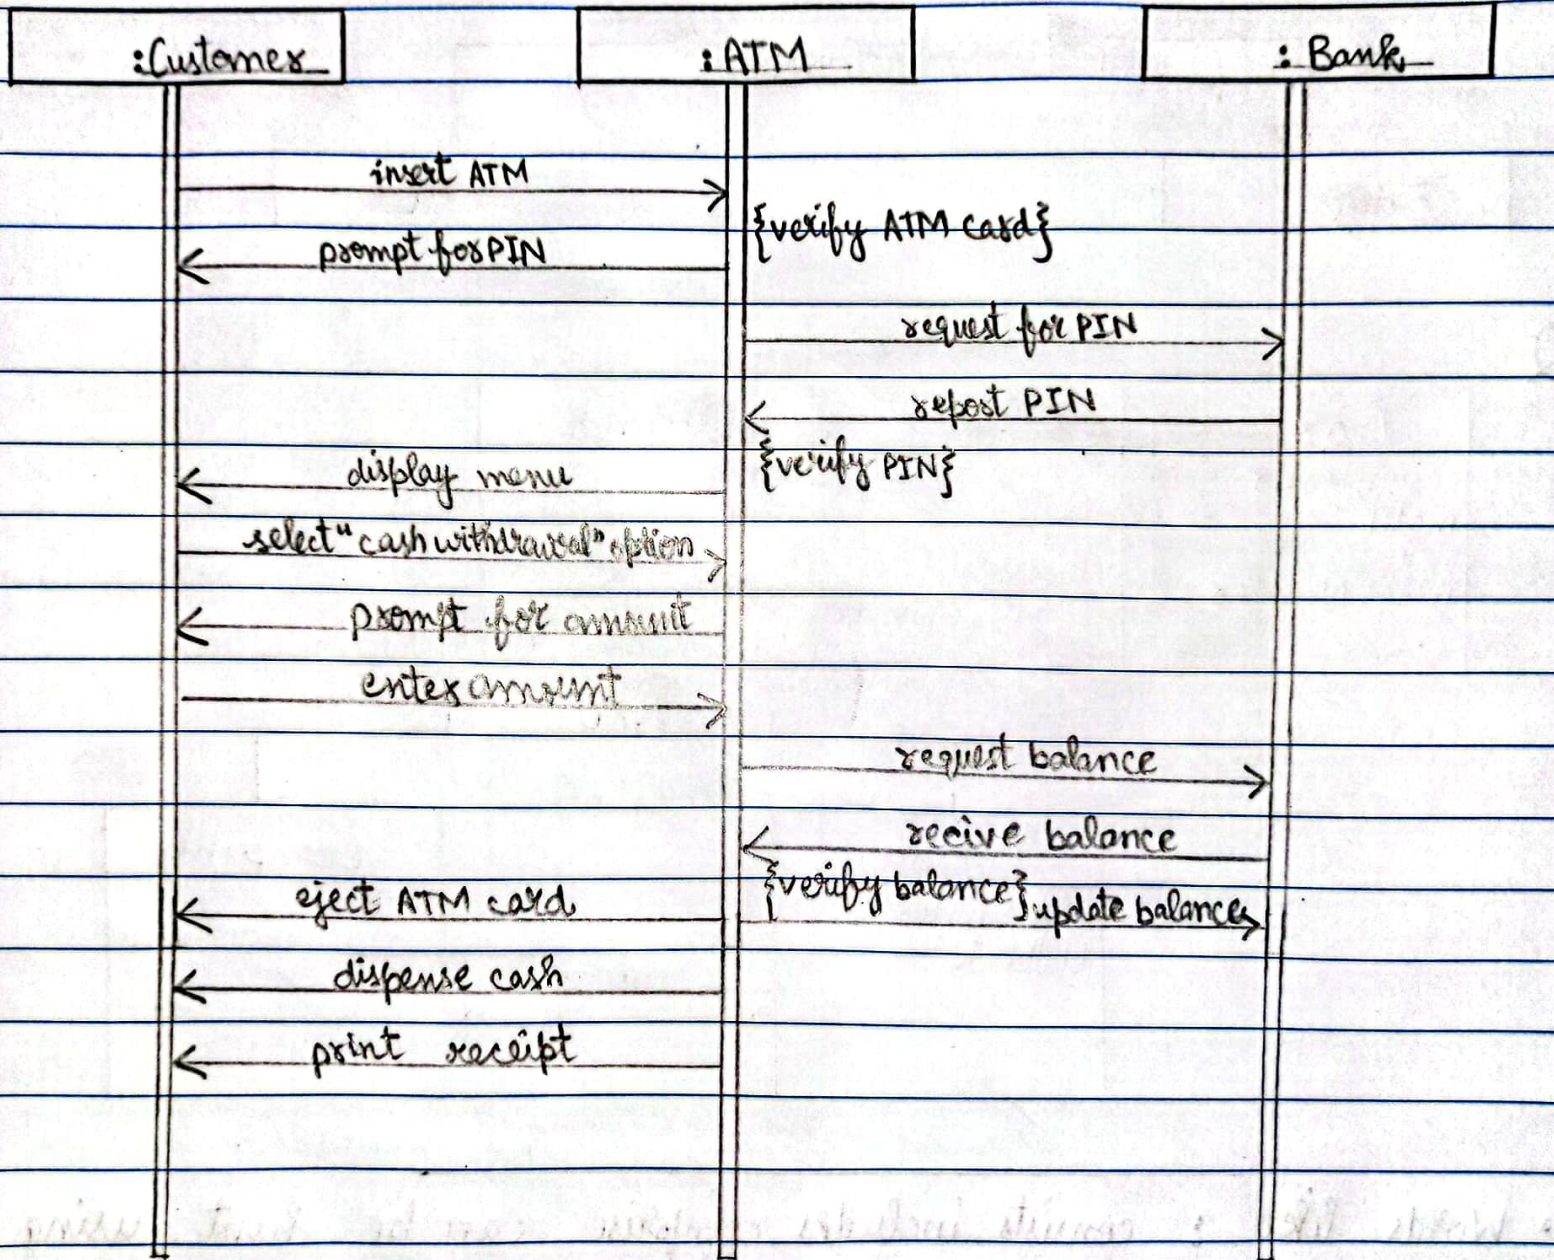 :Customer :ATM :Bank
insert ATM
{verify ATM card}
prompt for PIN
request for PIN
report PIN
{verify PIN}
display menu
select "cash withdrawal" option
prompt for amount
enter amount
request balance
recive balance
{verify balance}
eject ATM card
update balance
dispense cash
print receipt